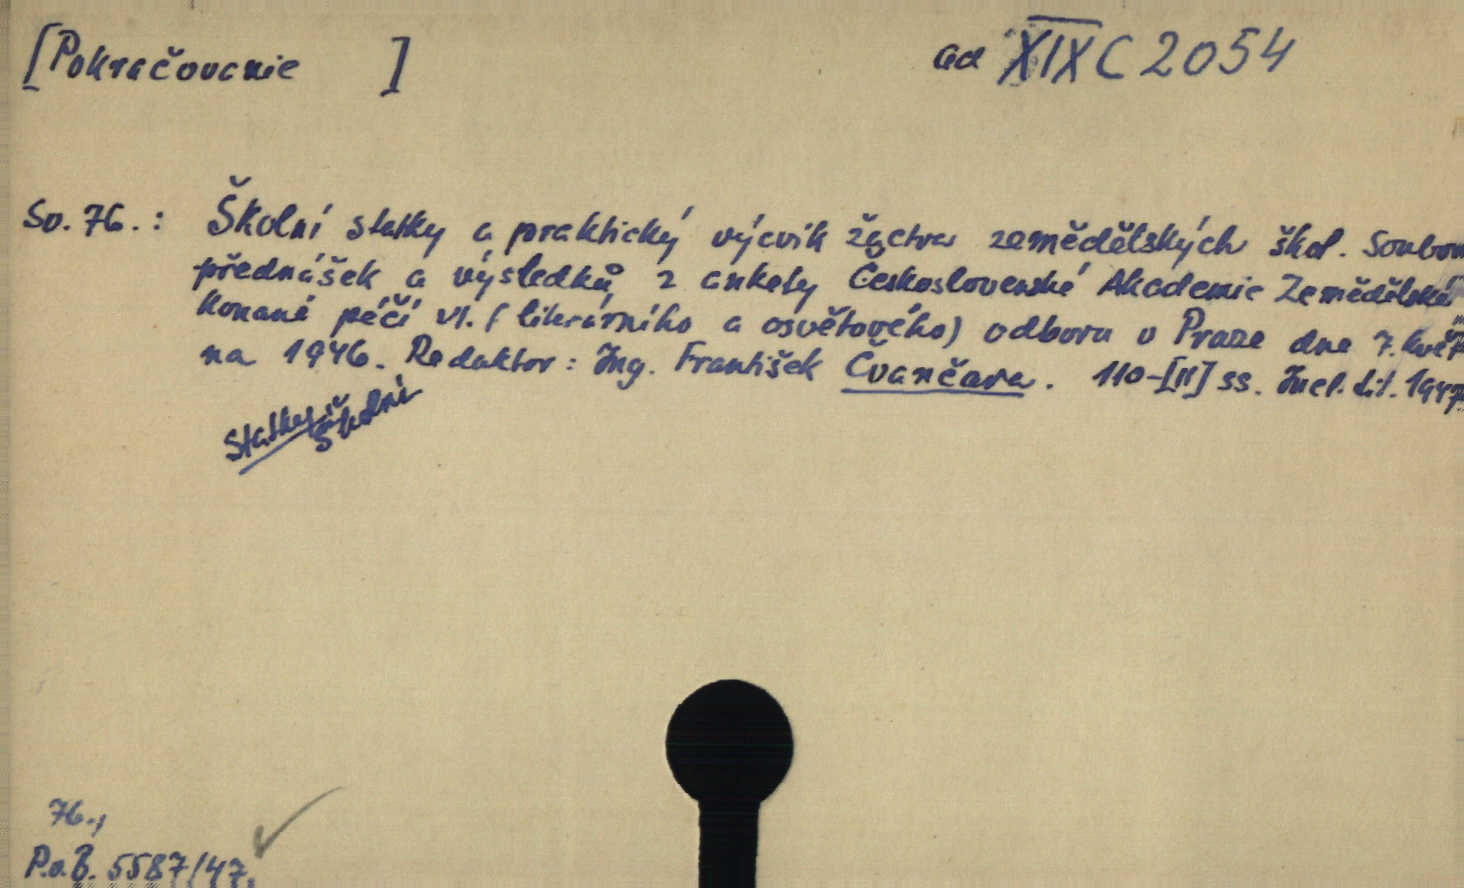 [Pokračovanie ]
ad XIX C 2054
Sv. 76.: Školní statky a praktický výcvik žactva zemědělských škol. Soubor
přednášek a výsledků z ankety Československé Akademie Zemědělské
konané péčí VI. (literárního a osvětového) odboru v Praze dne 7. květ
na 1946. Redaktor: Ing. František Čvančara. 110-[II] ss. Incl. tit. 1947.
Statky školní
76.,
P.a.B. 5587/47.